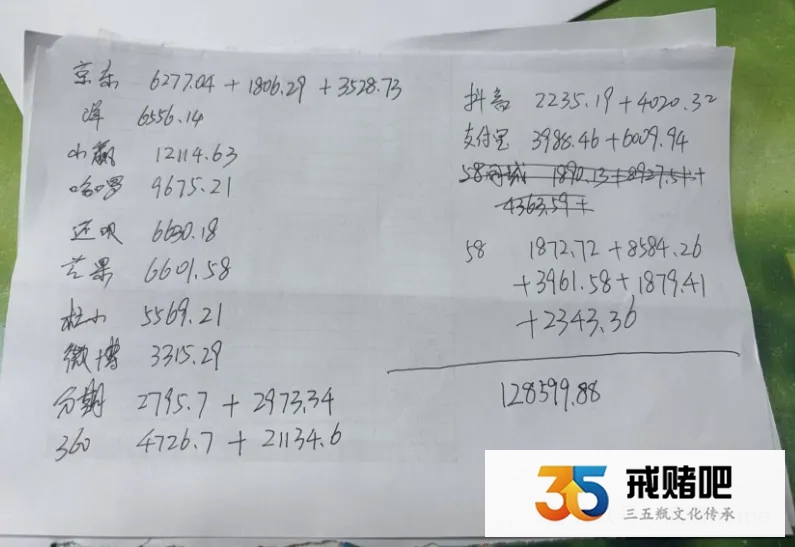 京东 6277.04 + 1806.29 + 3528.73
洋 6556.14
小赢 12114.63
哈啰 9675.21
还呗 6630.18
芒果 6601.58
5569.21
微博 3315.29
分期 2795.7 + 2973.34
360 4726.7 + 21134.6
抖音 2235.19+4020.32
支付宝 3988.46+6009.94
58同城 1890.13+8927.51+
4363.59+
58 1872.72 + 8584.26
+3961.58+1879.41
+2343.36
128599.88
35 戒赌吧
三五瓶文化传承